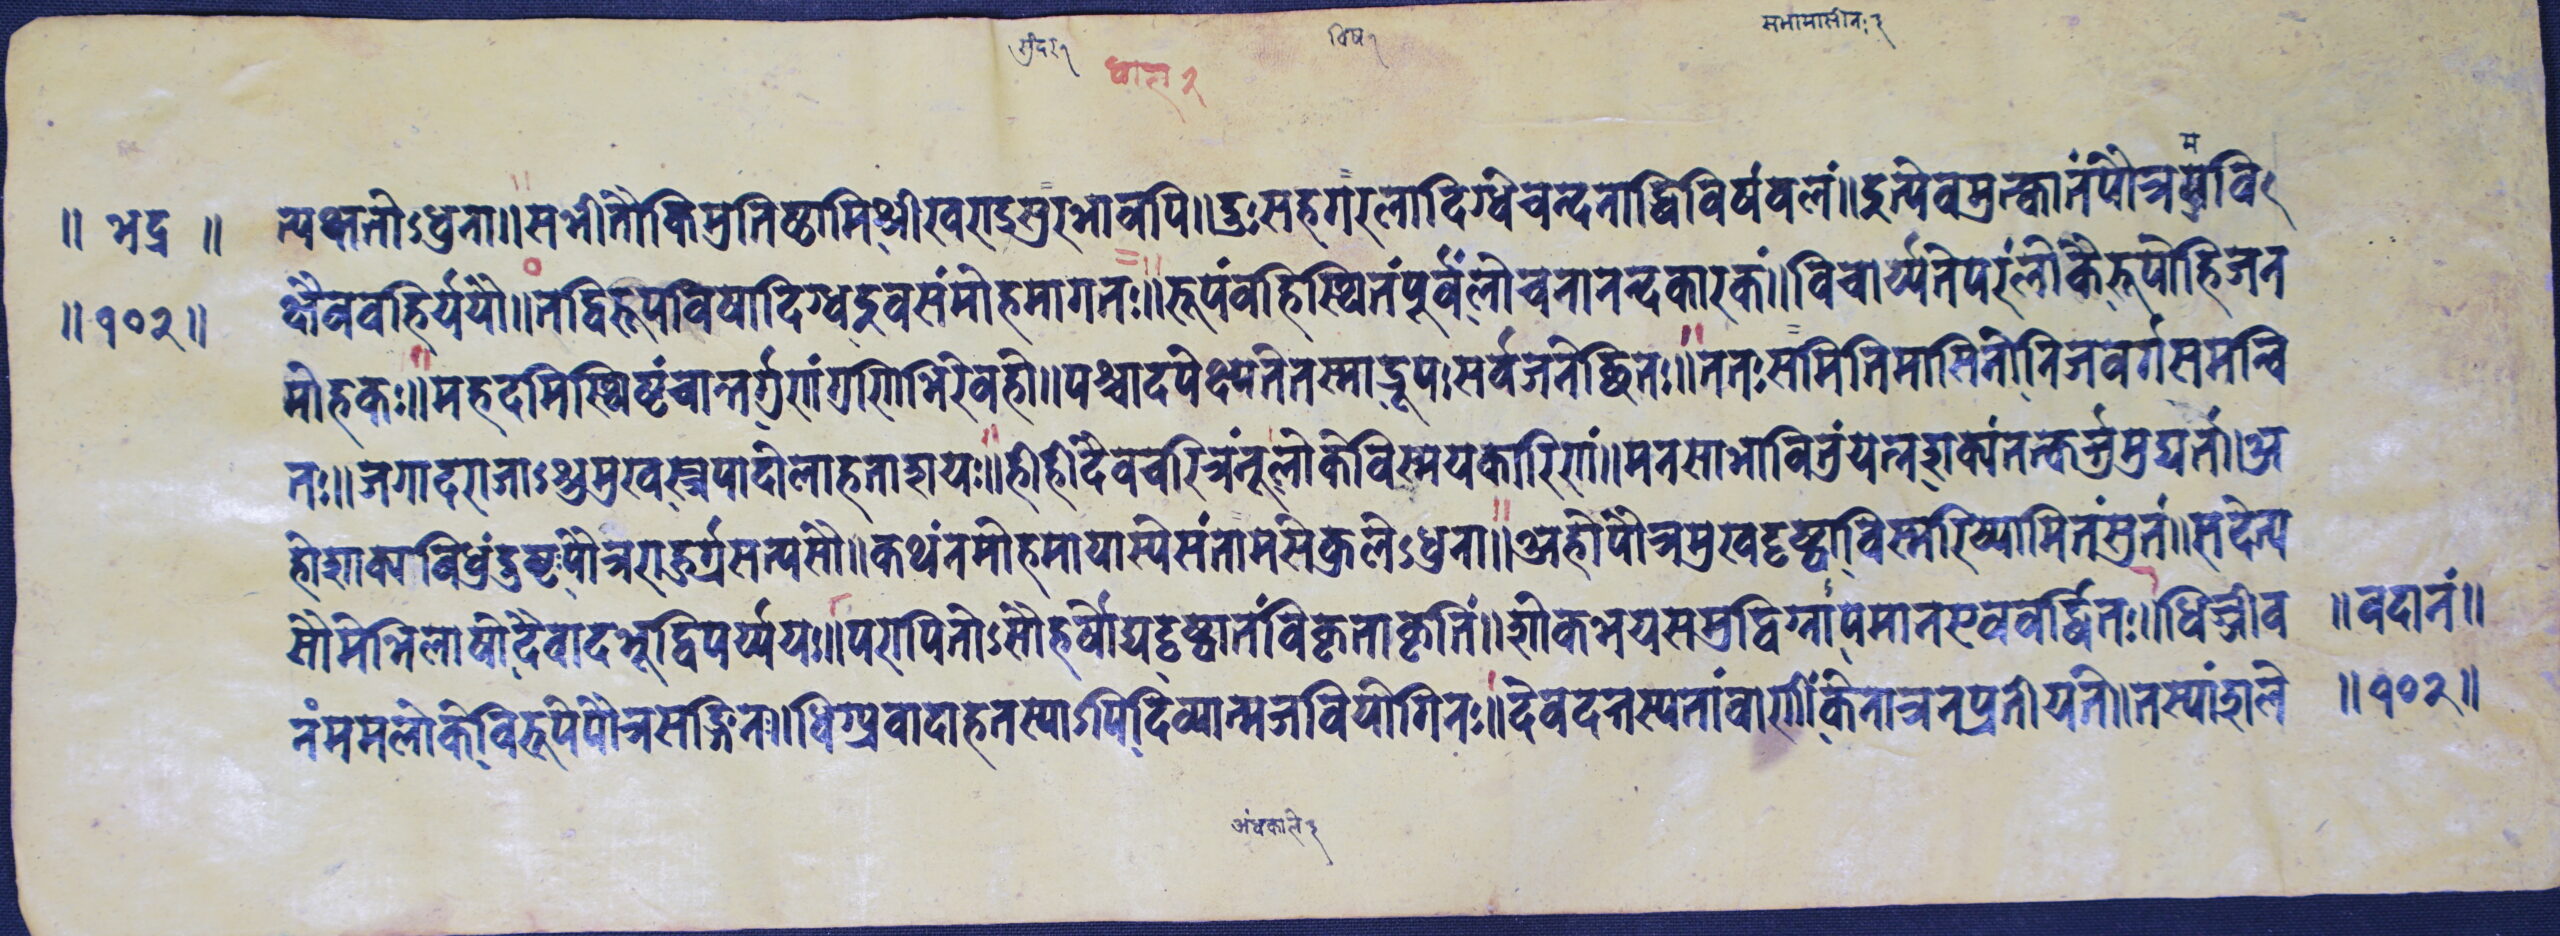 सुंदर १
विष १
सभामासीनः ३
घात्स २
म
॥ भद्र ॥ त्यथ्वनोऽधुना॥सभीतौकिमुनतिष्ठामिश्रीखरादुसुरभावपि॥दुःसहगरलादिग्धेचन्दनाद्धिविषंवलं॥इत्येवमुत्क्वानंपौत्रमुवि
॥१०२॥ क्ष्यैववहिर्य्ययौ॥तद्विरूपविषादिग्धइवसंमोहमागतः॥रूपंवहिस्थितंपूर्वंलोचनानन्दकारकं॥विचार्य्यतेपरंलोकैरूपोहिजन
मोहकः॥महदमिस्थिष्टंचान्तर्गुणंगुणिभिरेवही॥पश्चादपेक्ष्यतेतस्माद्रूपःसर्वजनेछितः॥ततःसमितिमासिनोनिजवर्गसमन्वि
तः॥जगादराजाऽश्रुमुखस्वपादोलाहताशयः॥होहोदैवचरित्रंतुलोकेविस्मयकारिणं॥मनसाभावितुंयन्नशक्यंतत्कर्त्तुमुद्यतं॥अ
होशाक्यविधुंदुष्टपौत्रराहुर्ग्रसत्यसौ॥कथंनमोहमायास्येसंतामसेकुलेऽधुना॥अहोपौत्रमुखंदृष्ट्वाविस्मरिष्यामितंसुतं॥सदेत्य
सौमेभिलाषोदैवादभूद्विपर्य्ययः॥परापितोऽसौहर्षोद्यदृष्ट्वातंविकृताकृतिं॥शोकभयसमुद्विग्नोपमानएववर्द्धितः॥धिग्जीव ॥वदानं॥
तंममलोकेविरूपेपौत्रसङ्गितः॥धिग्प्रवादाहतस्याऽपिदिव्यात्मजवियोगिनः॥देवदत्तस्यतांवाणींकेनात्रनप्रतीयते॥तस्यांशले ॥१०२॥
अंधकाले ३